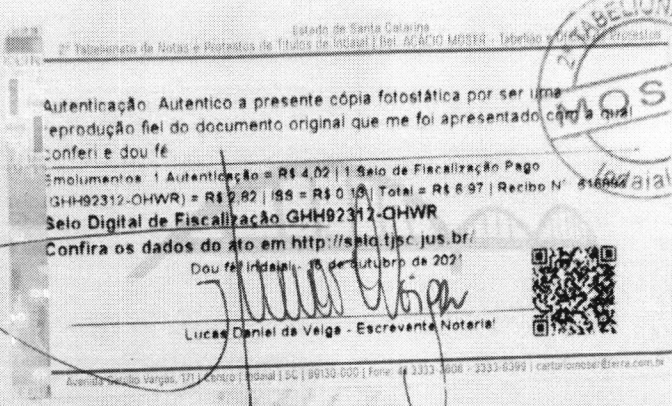 Estado de Santa Catarina
2º Tabelionato de Notas e Protestos de Títulos de Indaial | Bel. ACÁCIO MOSER - Tabelião e Protestos
2º TABELION
MOS
Indaial
Autenticação Autentico a presente cópia fotostática por ser uma
reprodução fiel do documento original que me foi apresentado com a qual
conferi e dou fé
Emolumentos: 1 Autenticação = R$ 4,02 | 1 Selo de Fiscalização Pago
(GHH92312-OHWR) = R$ 2,82 | ISS = R$ 0 | Total = R$ 6.97 | Recibo Nº
Selo Digital de Fiscalização GHH92312-OHWR
Confira os dados do ato em http://selo.tjsc.jus.br/
Dou fé, Indaial - de outubro de 2021
Lucas Daniel da Veiga - Escrevente Notarial
Avenida Getúlio Vargas, 171 | Centro | Indaial | SC | 89130-000 | Fone: 3333-3806 - 3333-6399 | cartoriomoser@terra.com.br